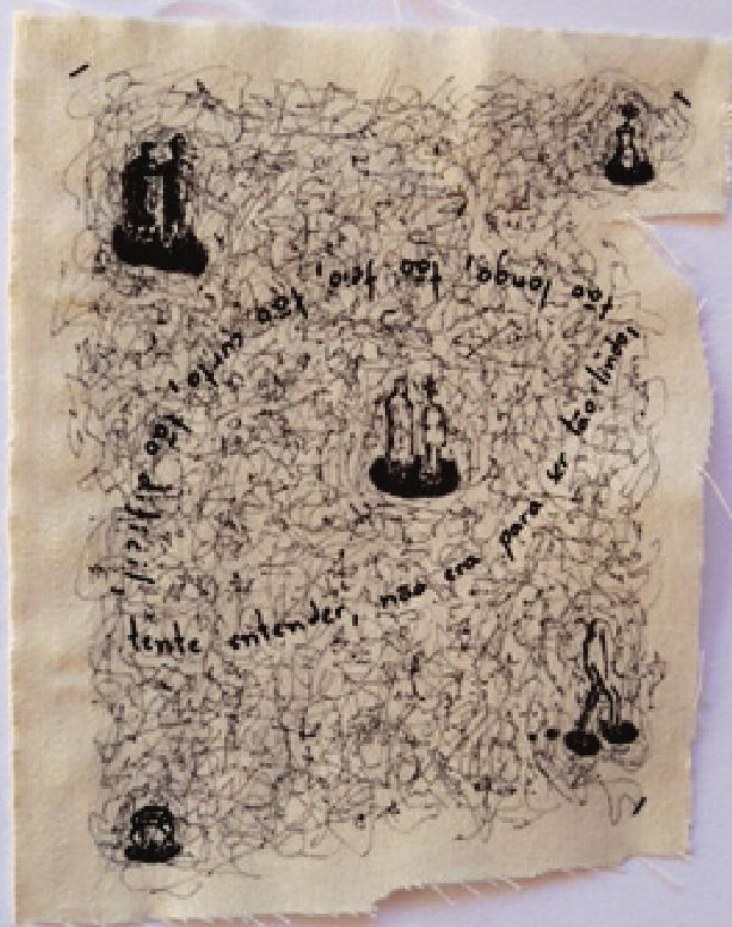 tente entender, não era para ser tão lindo, tão longo, tão feio, tão curto, tão difícil,